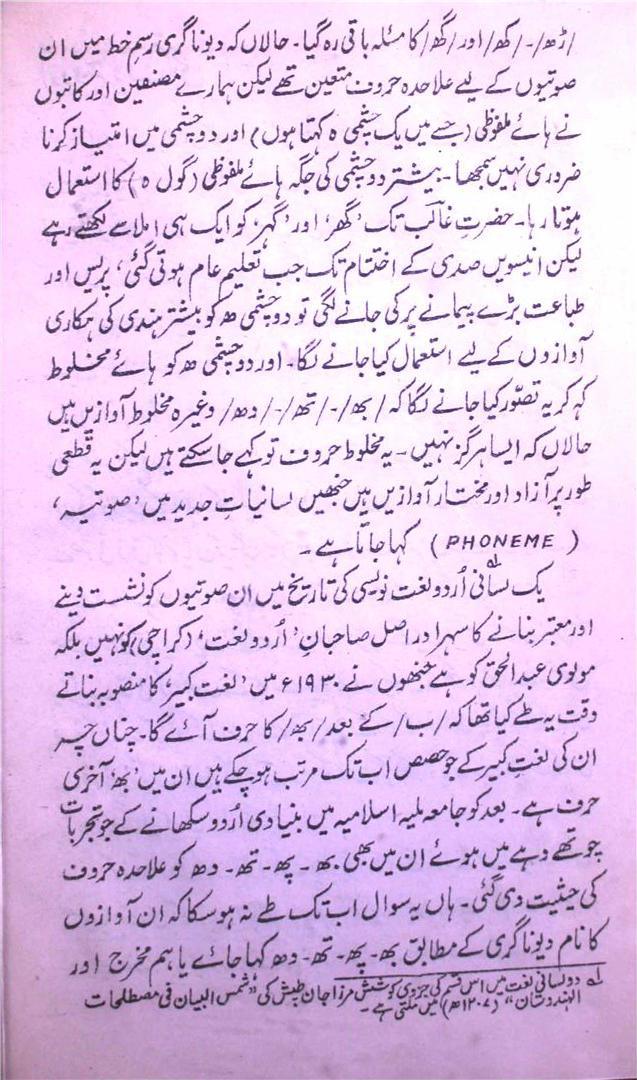 /ڑھ/-/کھ/ اور /گھ/ کا مسئلہ باقی رہ گیا۔ حالاں کہ دیوناگری رسم خط میں ان
صوتیوں کے لیے علاحدہ حروف متعین تھے لیکن ہمارے مصنفین اور کاتبوں
نے ہائے ملفوظی (جسے میں یک چشمی ہ کہتا ہوں) اور دوچشمی میں امتیاز کرنا
ضروری نہیں سمجھا۔ بیشتر دوچشمی کی جگہ ہائے ملفوظی (گول ہ) کا استعمال
ہوتا رہا۔ حضرتِ غالب تک ’گھر‘ اور ’گہر‘ کو ایک ہی املا سے لکھتے رہے
لیکن انیسویں صدی کے اختتام تک جب تعلیم عام ہوتی گئی، پریس اور
طباعت بڑے پیمانے پر کی جانے لگی تو دوچشمی ھ کو بیشتر ہندی کی ہکاری
آوازوں کے لیے استعمال کیا جانے لگا۔ اور دوچشمی ھ کو ہائے مخلوط
کہہ کر یہ تصوّر کیا جانے لگا کہ /بھ/-/تھ/-/دھ/ وغیرہ مخلوط آوازیں ہیں
حالاں کہ ایسا ہرگز نہیں۔ یہ مخلوط حروف تو کہے جا سکتے ہیں لیکن یہ قطعی
طور پر آزاد اور مختار آوازیں ہیں جنھیں لسانیاتِ جدید میں ’صوتیہ‘
(PHONEME) کہا جاتا ہے۔
یک لسانی لے اُردو لغت نویسی کی تاریخ میں ان صوتیوں کو نشست دینے
اور معتبر بنانے کا سہرا دراصل صاحبانِ ’اُردو لغت‘ (کراچی) کو نہیں بلکہ
مولوی عبدالحق کو ہے جنھوں نے ۱۹۳۰ء میں ’لغت کبیر‘ کا منصوبہ بناتے
وقت یہ طے کیا تھا کہ /ب/ کے بعد /بھ/ کا حرف آئے گا۔ چناں چہ
ان کی لغتِ کبیر کے جو حصص اب تک مرتب ہو چکے ہیں ان میں ’بھ‘ آخری
حرف ہے۔ بعد کو جامعہ ملیہ اسلامیہ میں بنیادی اُردو سکھانے کے جو تجربات
چوتھے دہے میں ہوئے ان میں بھی بھ۔ پھ۔ تھ۔ دھ کو علاحدہ حروف
کی حیثیت دی گئی۔ ہاں یہ سوال اب تک طے نہ ہو سکا کہ ان آوازوں
کا نام دیوناگری کے مطابق بھ۔ پھ۔ تھ۔ دھ کہا جائے یا ہم مخرج اور
لے دو لسانی لغت میں اس قسم کی جزوی کوشش مرزا جان طپش کی ”شمس البیان فی مصطلحات
الہندوستان“ (۱۲۰۷ھ) میں ملتی ہے۔